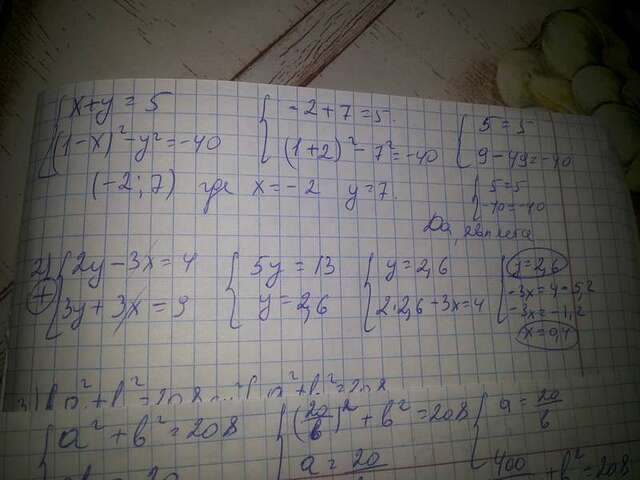 { x+y=5
(1-x)²-y²=-40
{ -2+7=5.
(1+2)²-7²=-40
{ 5=5
9-49=-40
(-2;7) где x=-2 y=7.
{ 5=5
-40=-40
Да, является
2) { 2y-3x=4
+ 3y+3x=9
{ 5y=13
y=2,6
{ y=2,6
2·2,6-3x=4
{ y=2,6
-3x=4-5,2
-3x=-1,2
x=0,4
{ a²+b²=208
{ (20/b)²+b²=208
a=20
{ a=20/b
400 +b²=208